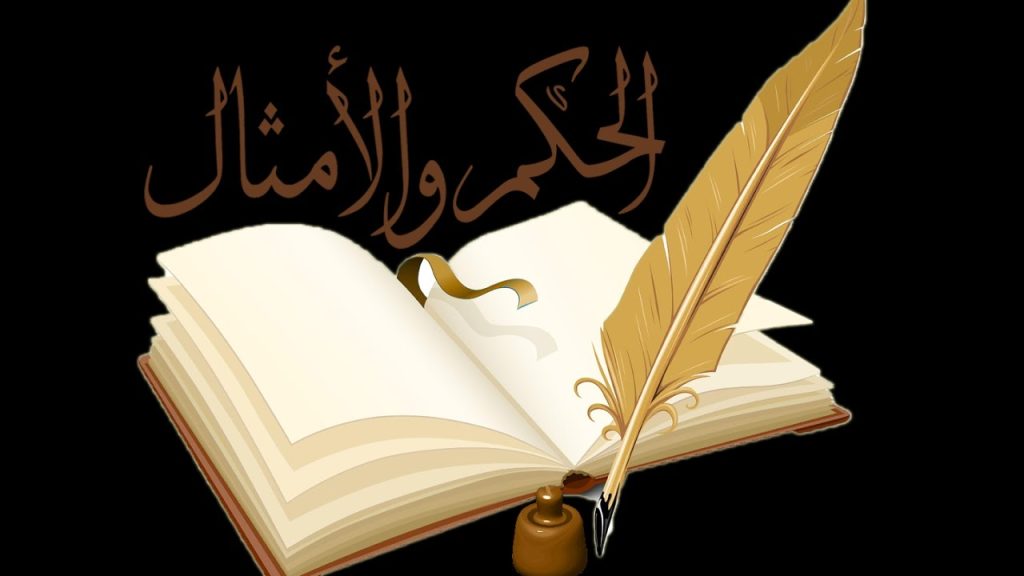 الحكم والأمثال